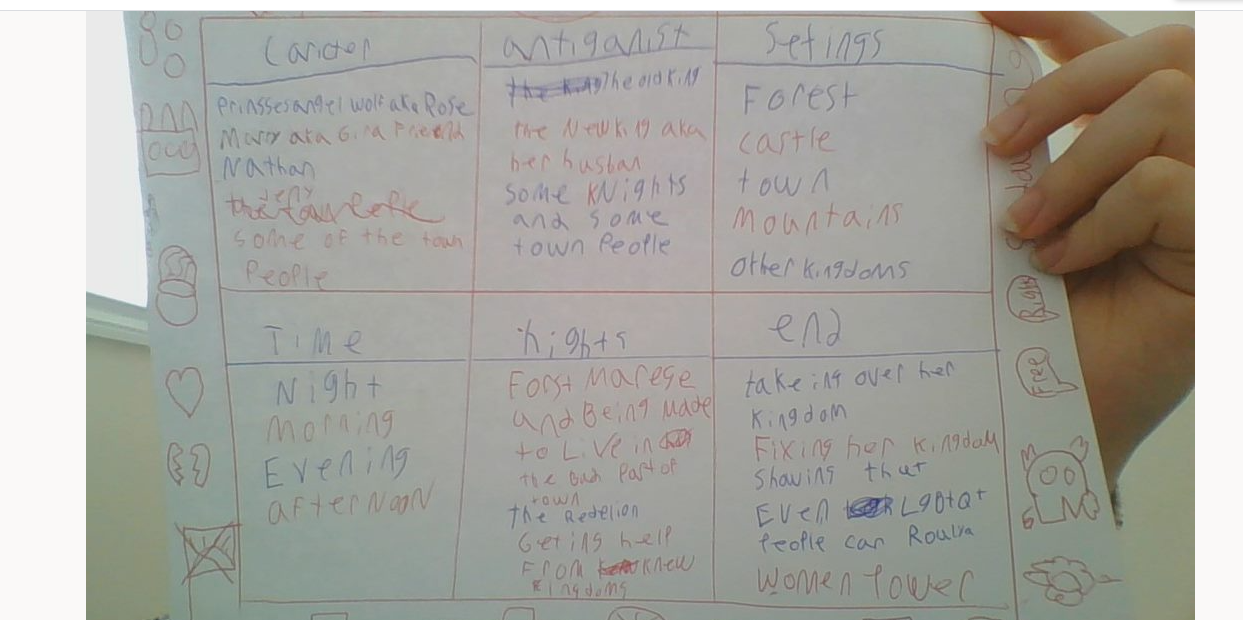 Caricter
Prinsses angel wolf aka Rose
Marry aka Gina Freeld
Nathan
some of the town
People
antiganist
the old King
the New King aka
her husban
some KNights
and some
town People
Setings
Forest
castle
town
Mountains
other kingdoms
TiMe
Night
Morning
Evening
afterNooN
hights
Forst Marege
and Being Made
to Live in
the Bad Part of
town
the Rebelion
Geting help
From knew
Kingdoms
end
take ing over her
Kingdom
Fixing her Kingdam
Showing that
Even LGBTQ+
People can
Women Power
Right
Free